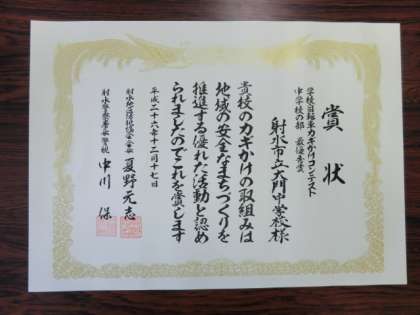 賞状
学校自転車カギかけコンテスト
中学校の部 最優秀賞
射水市立大門中学校様
貴校のカギかけの取組みは
地域の安全なまちづくりを
推進する優れた活動と認め
られましたのでこれを賞します
平成二十六年十二月十七日
射水地区防犯協会会長 夏野元志
射水警察署長警視 中川保